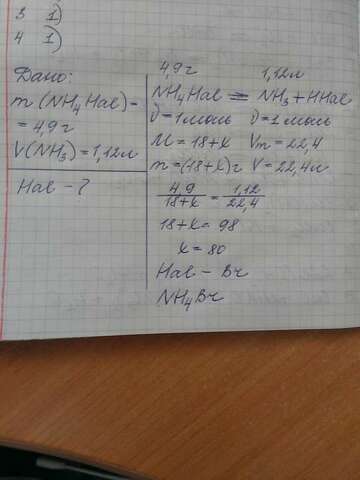 3 1)
4 1)
Дано:
m (NH₄Hal) =
= 4,9г
V(NH₃) = 1,12л
Hal - ?
4,9г 1,12л
NH₄Hal = NH₃ + HHal
ν = 1моль ν = 1моль
M = 18+x Vm = 22,4
m = (18+x)г V = 22,4л
4,9/18+x = 1,12/22,4
18+x = 98
x = 80
Hal - Br
NH₄Br